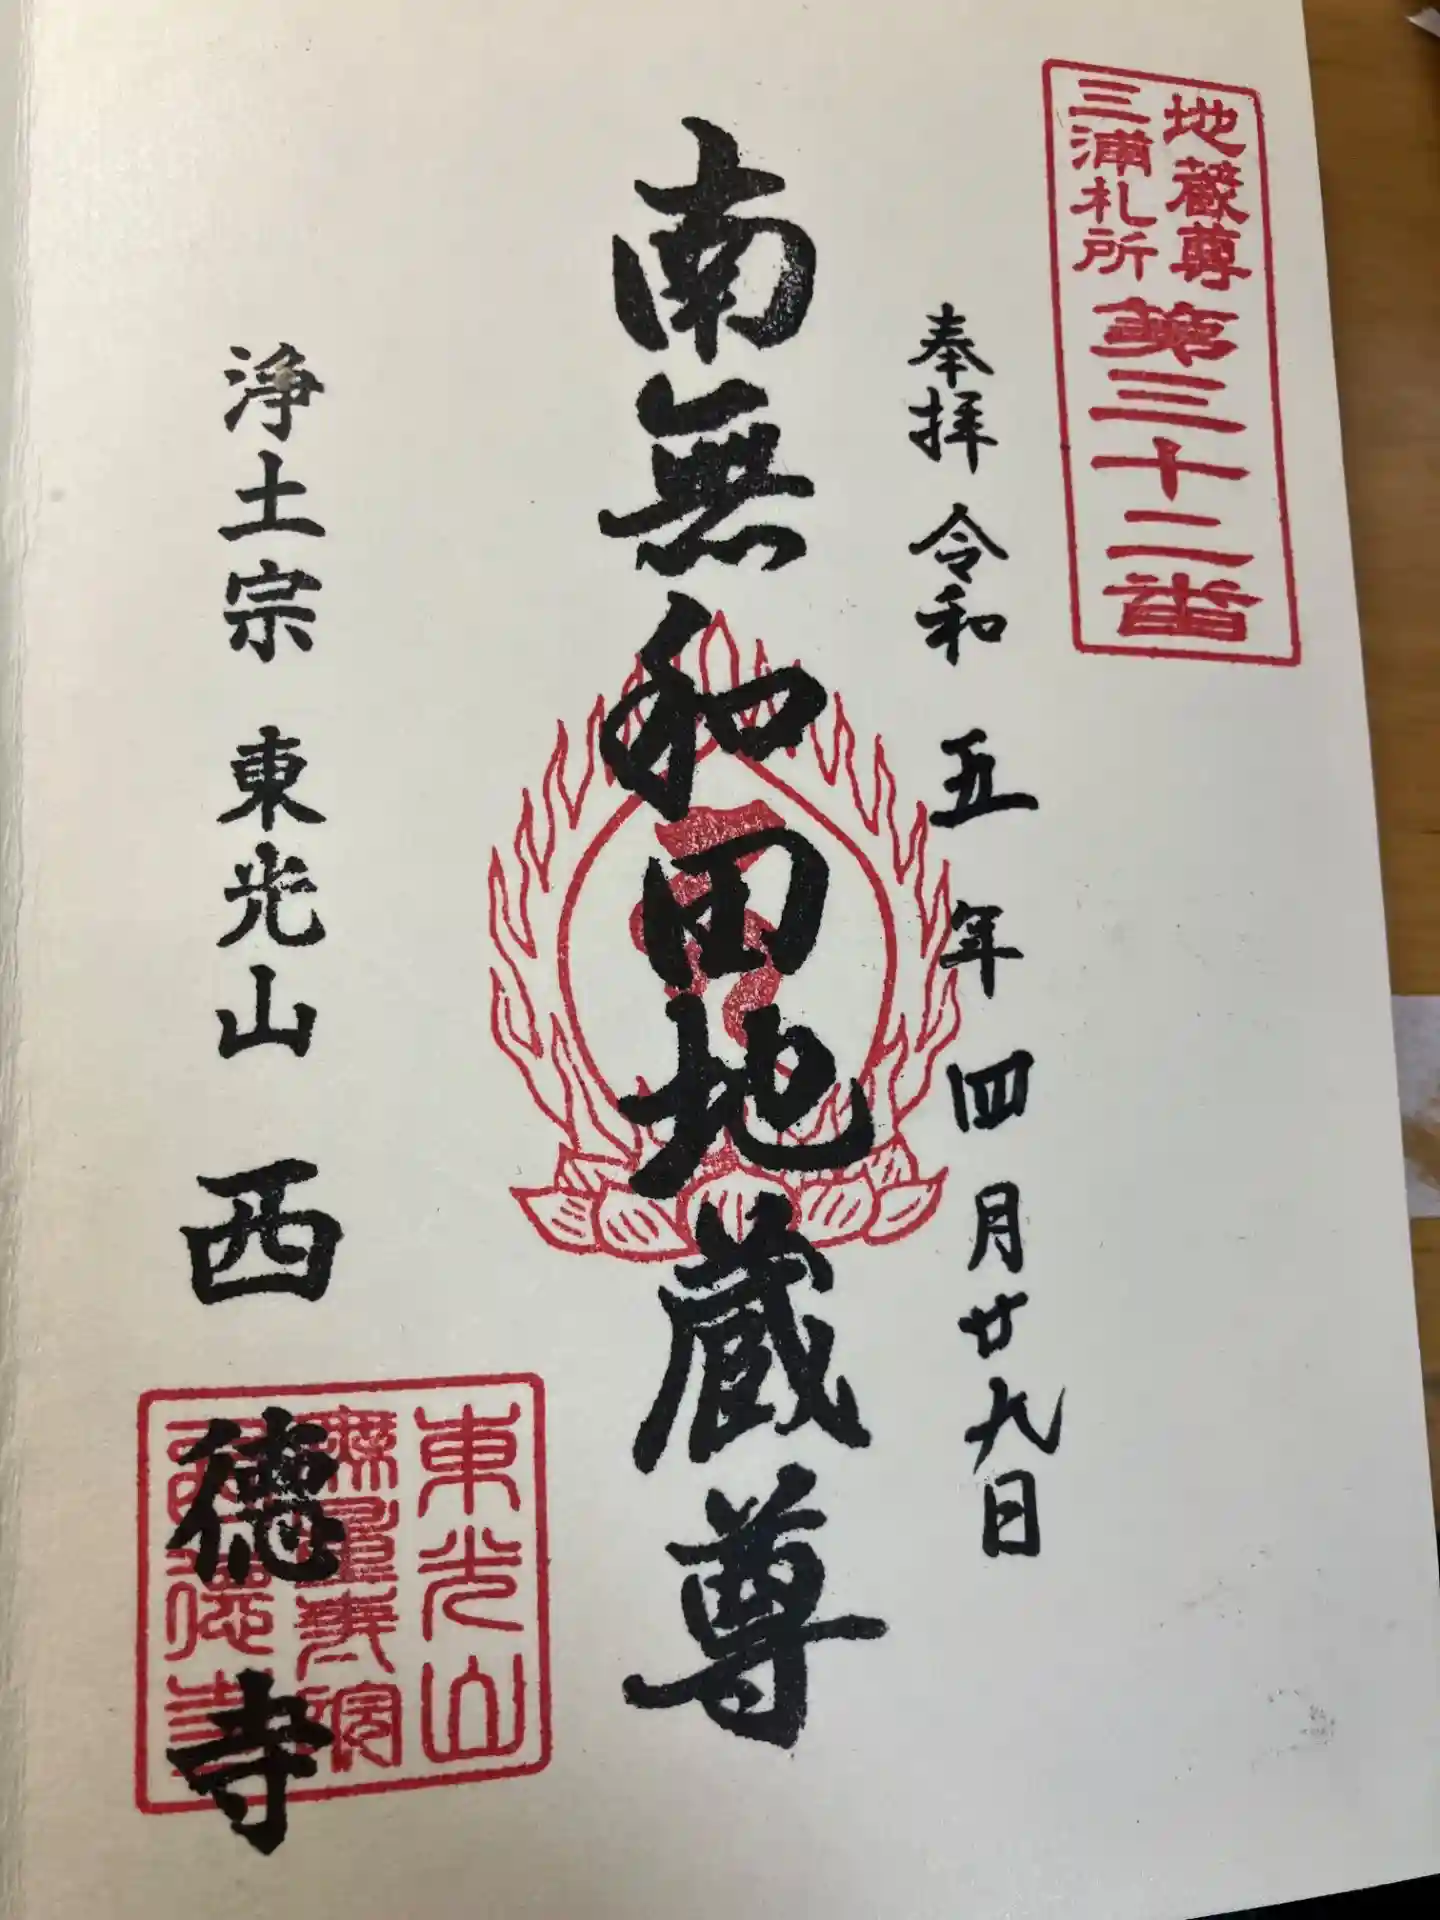 地蔵尊
三浦札所
第三十二番
奉拝 令和五年四月廿九日
南無和田地蔵尊
浄土宗 東光山 西徳寺
東光山
無量寿院
西德寺